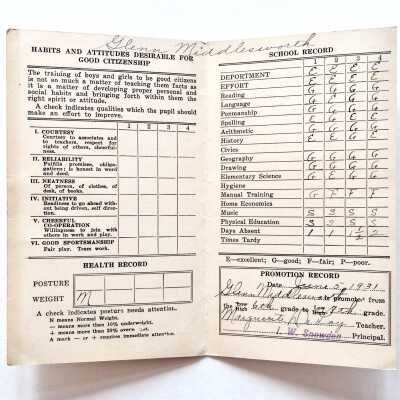 Glenn Middlesworth
HABITS AND ATTITUDES DESIRABLE FOR
GOOD CITIZENSHIP
The training of boys and girls to be good citizens
is not so much a matter of teaching them facts as
it is a matter of developing proper personal and
social habits and bringing forth within them the
right spirit or attitude.
A check indicates qualities which the pupil should
make an effort to improve.
1 2 3 4
I. COURTESY
Courteous to associates and
to teachers, respect for
rights of others, cheerful-
ness.
II. RELIABILITY
Fulfills promises, obliga-
gations; is honest in word
and deed.
III. NEATNESS
Of person, of clothes, of
desk, of books.
IV. INITIATIVE
Readiness to go ahead with-
out being driven, self direc-
tion.
V. CHEERFUL
CO-OPERATION
Willingness to join with
others in work and play.
VI. GOOD SPORTSMANSHIP
Fair play. Team work.
HEALTH RECORD
POSTURE
WEIGHT N
A check indicates posture needs attention.
N means Normal Weight.
- means more than 10% underweight.
+ means more than 20% over
A mark - or + requires immediate attention.
SCHOOL RECORD
1 2 3 4
DEPORTMENT E E E E
EFFORT E E E E
Reading G G G G
Language G E G G
Penmanship G G G G
Spelling E G E E
Arithmetic G G G G
History E E G E
Civics
Geography G G G G
Drawing G G G G
Elementary Science G E G G
Hygiene
Manual Training G E F F
Home Economics
Music S S S S
Physical Education S S S S
Days Absent 1 1 ½ 2
Times Tardy
E—excellent; G—good; F—fair; P—poor.
PROMOTION RECORD
Date June 5, 1931
Glenn Middlesworth is promoted from
the Low High 6th grade to Low High 7th grade.
Marguerite Teacher.
I. W. Snowden Principal.